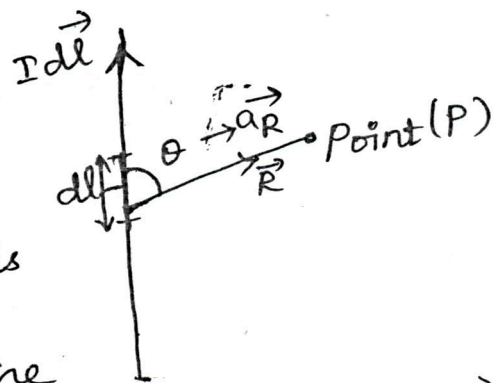 I dl
θ
aR
Point (P)
R
dl
s
ne